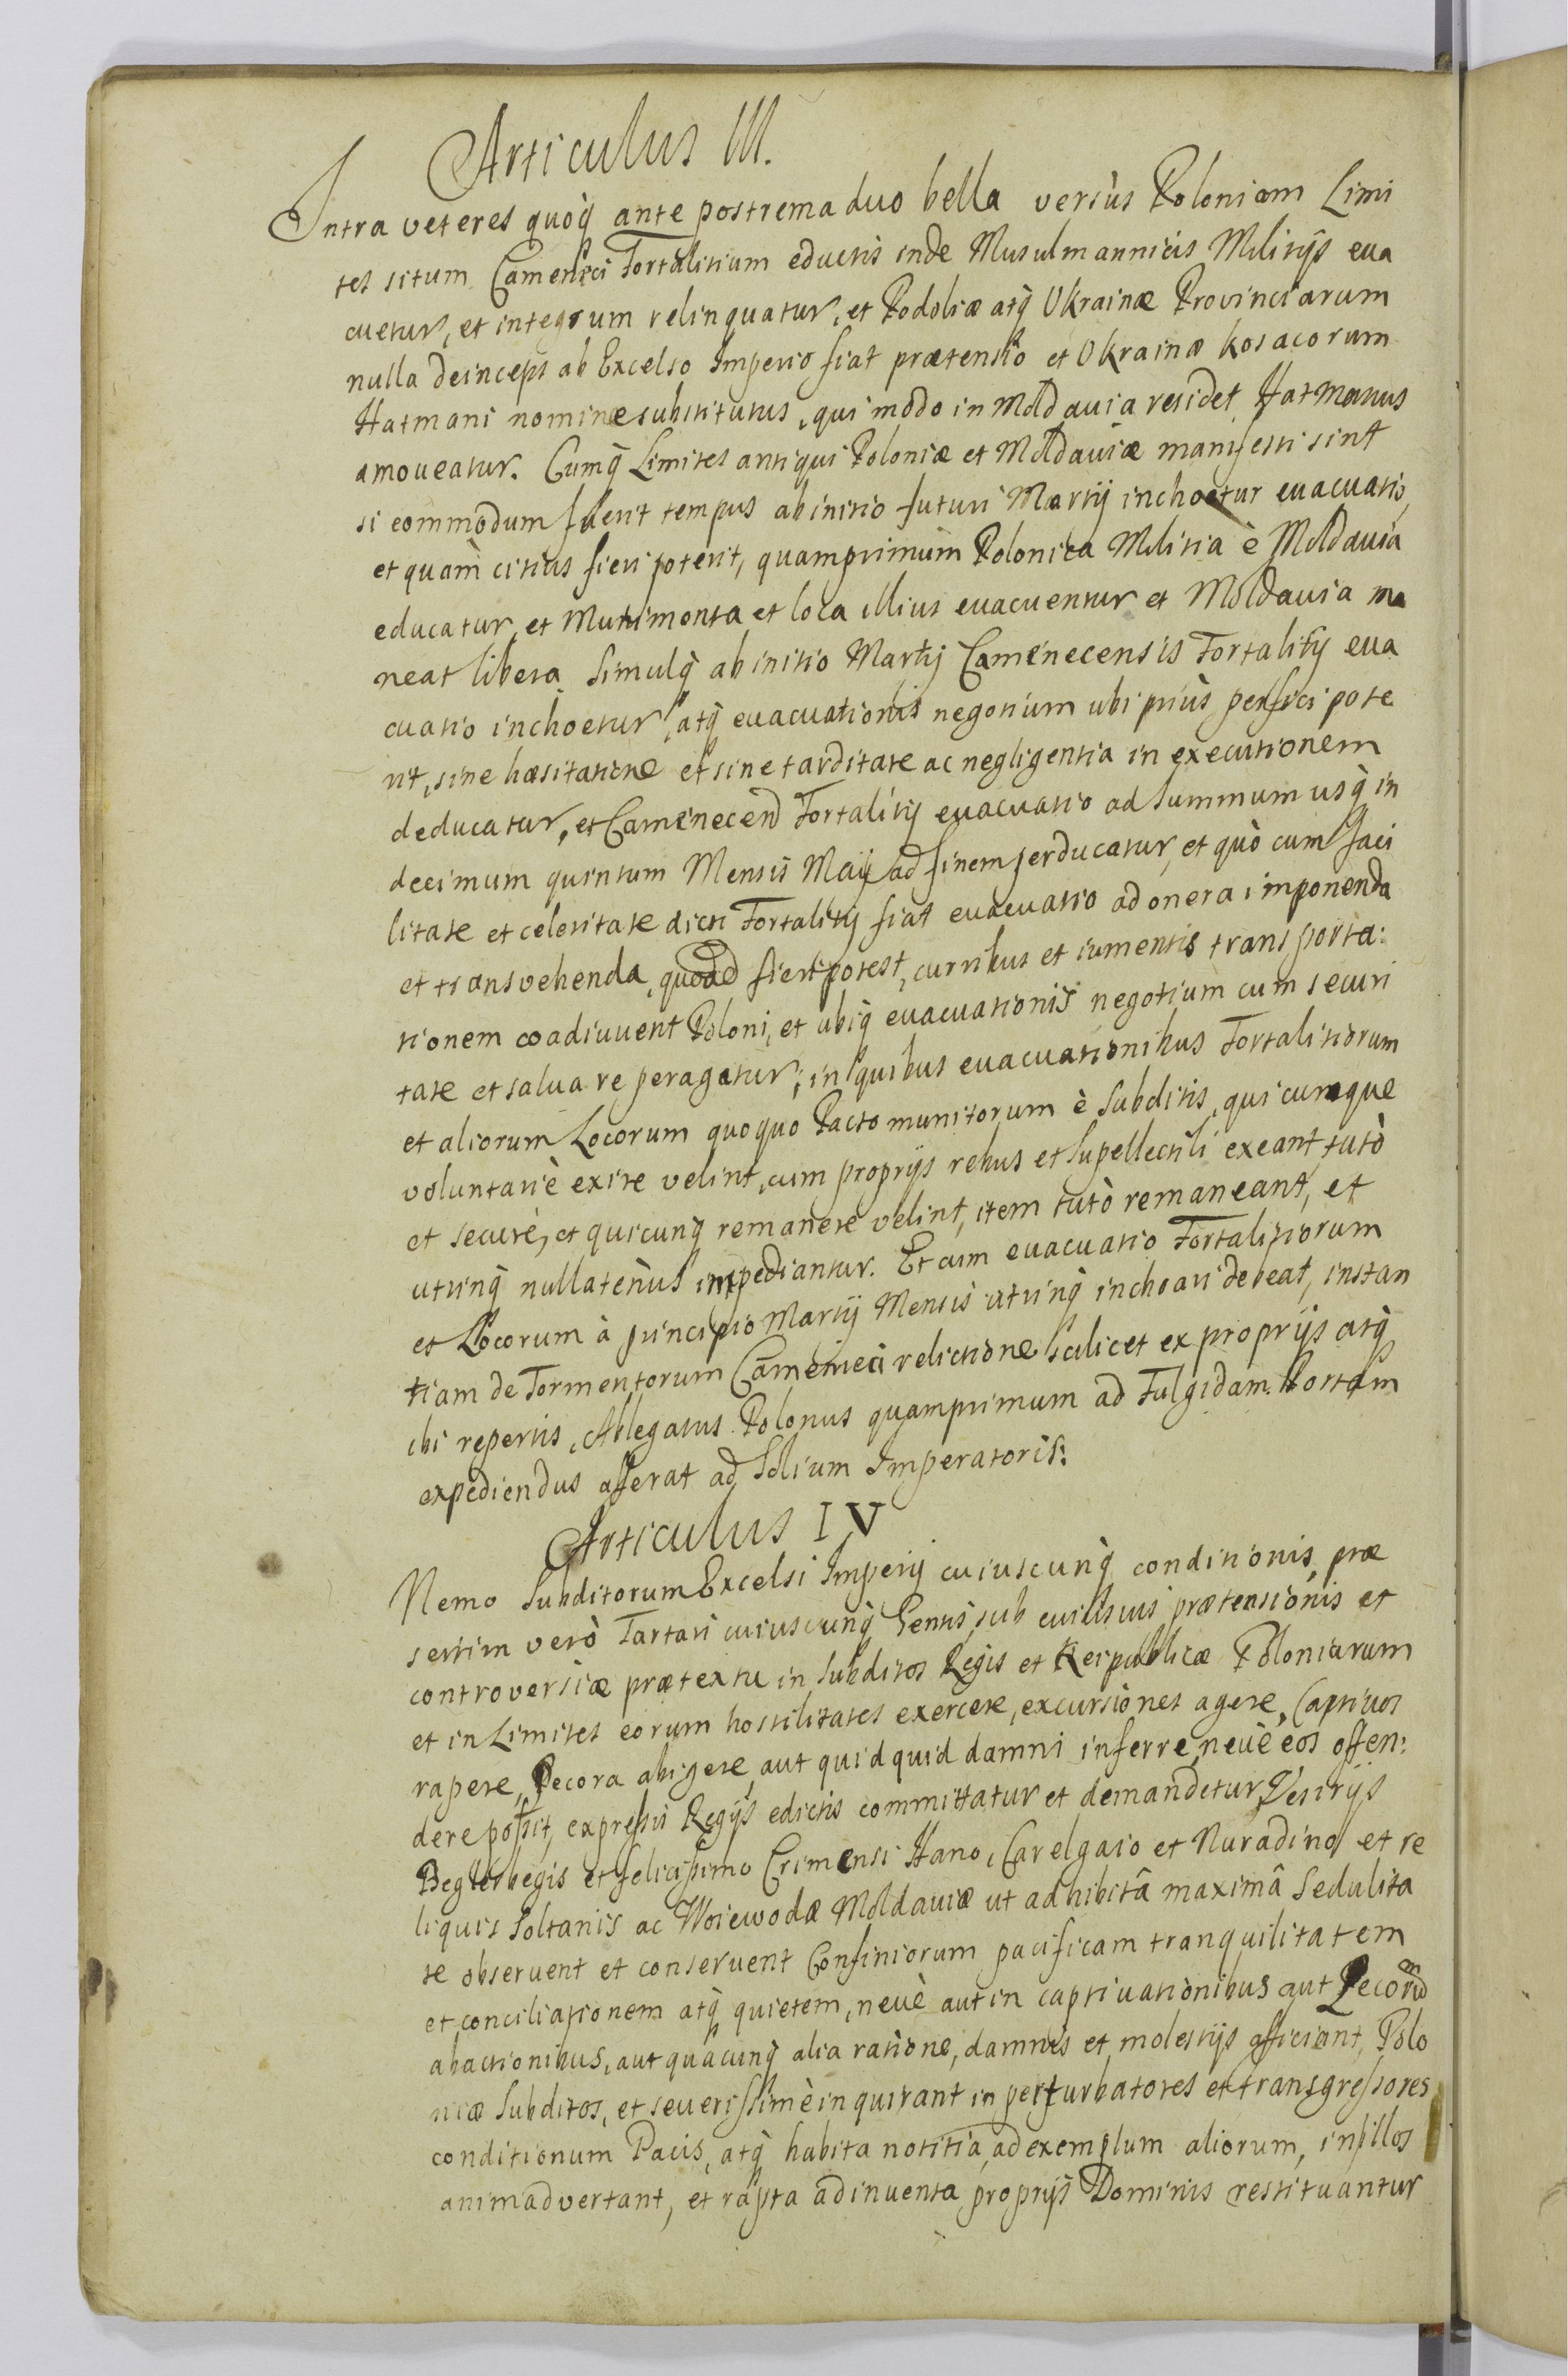 Articulus III.
Intra veteres quoq̀ ante postrema duo bella versùs Poloniam Limi
tes situm Cameneci Fortalitium eductis inde Musulmannicis Militijs eua
cuetur, et integrum relinquatur, et Podoliæ atq̀ Ukrainæ Provinciarum
nulla deinceps ab Excelso Imperio fiat prætensio et Ukrainæ Kosacorum
Hatmani nomine substitutus, qui modo in Moldauia residet Hatmanus
amoueatur. Cumq̀ Limites antiqui Poloniæ et Moldauiæ manifesti sint
si commodum fuerit tempus ab initio futuri Martij inchoetur euacuatio,
et quàm citius fieri poterit, quamprimum Polonica Militia è Moldauia
educatur, et Munimenta et loca illius euacuentur et Moldauia ma
neat libera. Simulq̀ ab initio Martij Camenecensis Fortalitij eua
cuatio inchoetur, atq̀ euacuationis negotium ubi priùs perfici pote
rit, sine hæsitatione et sine tarditate ac negligentia in executionem
deducatur, et Camenecen Fortalitij euacuatio ad summum usq̀ in
decimum quintum Mensis Maij ad finem perducatur, et quò cum faci
litate et celeritate dicti Fortalitij fiat euacuatio ad onera imponenda
et transvehenda, quoad fieri potest, curribus et iumentis transporta:
tionem coadiuuent Poloni, et ubiq̀ euacuationis negotium cum securi
tate et salua re peragatur; in quibus euacuationibus Fortalitiorum
et aliorum Locorum quoquo Pacto munitorum è Subditis, quicumque
voluntariè exire velint, cum proprijs rebus et supellectili exeant tutò
et securè, et quicunq̀ remanere velint, item tutò remaneant, et
utrinq̀ nullatenùs impediantur. Et cum euacuatio Fortalitiorum
et Locorum à principio Martij Mensis utrinq̀ inchoari debeat, instan
tiam de Tormentorum Cameneci relictione scilicet ex proprijs atq̀
ibi repertis, Ablegatus Polonus quamprimum ad Fulgidam Portam
expediendus afferat ad Solium Imperatoris:
Articulus IV
Nemo Subditorum Excelsi Imperij cuiuscunq̀ conditionis, præ
sertim verò Tartari cuiuscunq̀ Gentis, sub cuiusuis prætensionis et
controversiæ prætextu in Subditos Regis et Reipublicæ Poloniarum
et in Limites eorum hostilitates exercere, excursiones agere, Captiuos
rapere, Pecora abigere, aut quidquid damni inferre, neuè eos offen:
dere possit, expressis Regijs edictis committatur et demandetur, Vesirijs
Beglerbegis et felicissimo Crimensi Hano, Carelgaio et Nuradino et re
liquis Soltanis ac Woiewodæ Moldauiæ ut adhibitâ maximâ Sedulita
te obseruent et conseruent Confiniorum pacificam tranquilitatem
et conciliationem atq̀ quietem, neuè aut in captiuationibus aut Pecorũ
abactionibus, aut quacunq̀ alia ratione, damnis et molestijs afficiant, Polo
niæ Subditos, et seuerissimè inquirant in perturbatores et transgressores
conditionum Pacis, atq̀ habita notitia, ad exemplum aliorum, in illos
animadvertant, et rapta adinuenta proprijs Dominis restituantur